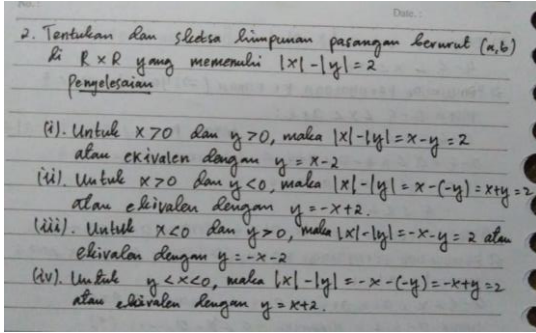 No.: Date.:
2. Tentukan dan sketsa himpunan pasangan berurut (a,b)
di R × R yang memenuhi |x|-|y|=2
Penyelesaian
(i). Untuk x>0 dan y>0, maka |x|-|y|=x-y=2
atau ekivalen dengan y=x-2
(ii). Untuk x>0 dan y<0, maka |x|-|y|=x-(-y)=x+y=2
atau ekivalen dengan y=-x+2.
(iii). Untuk x<0 dan y>0, maka |x|-|y|=-x-y=2 atau
ekivalen dengan y=-x-2
(iv). Untuk y<x<0, maka |x|-|y|=-x-(-y)=-x+y=2
atau ekivalen dengan y=x+2.